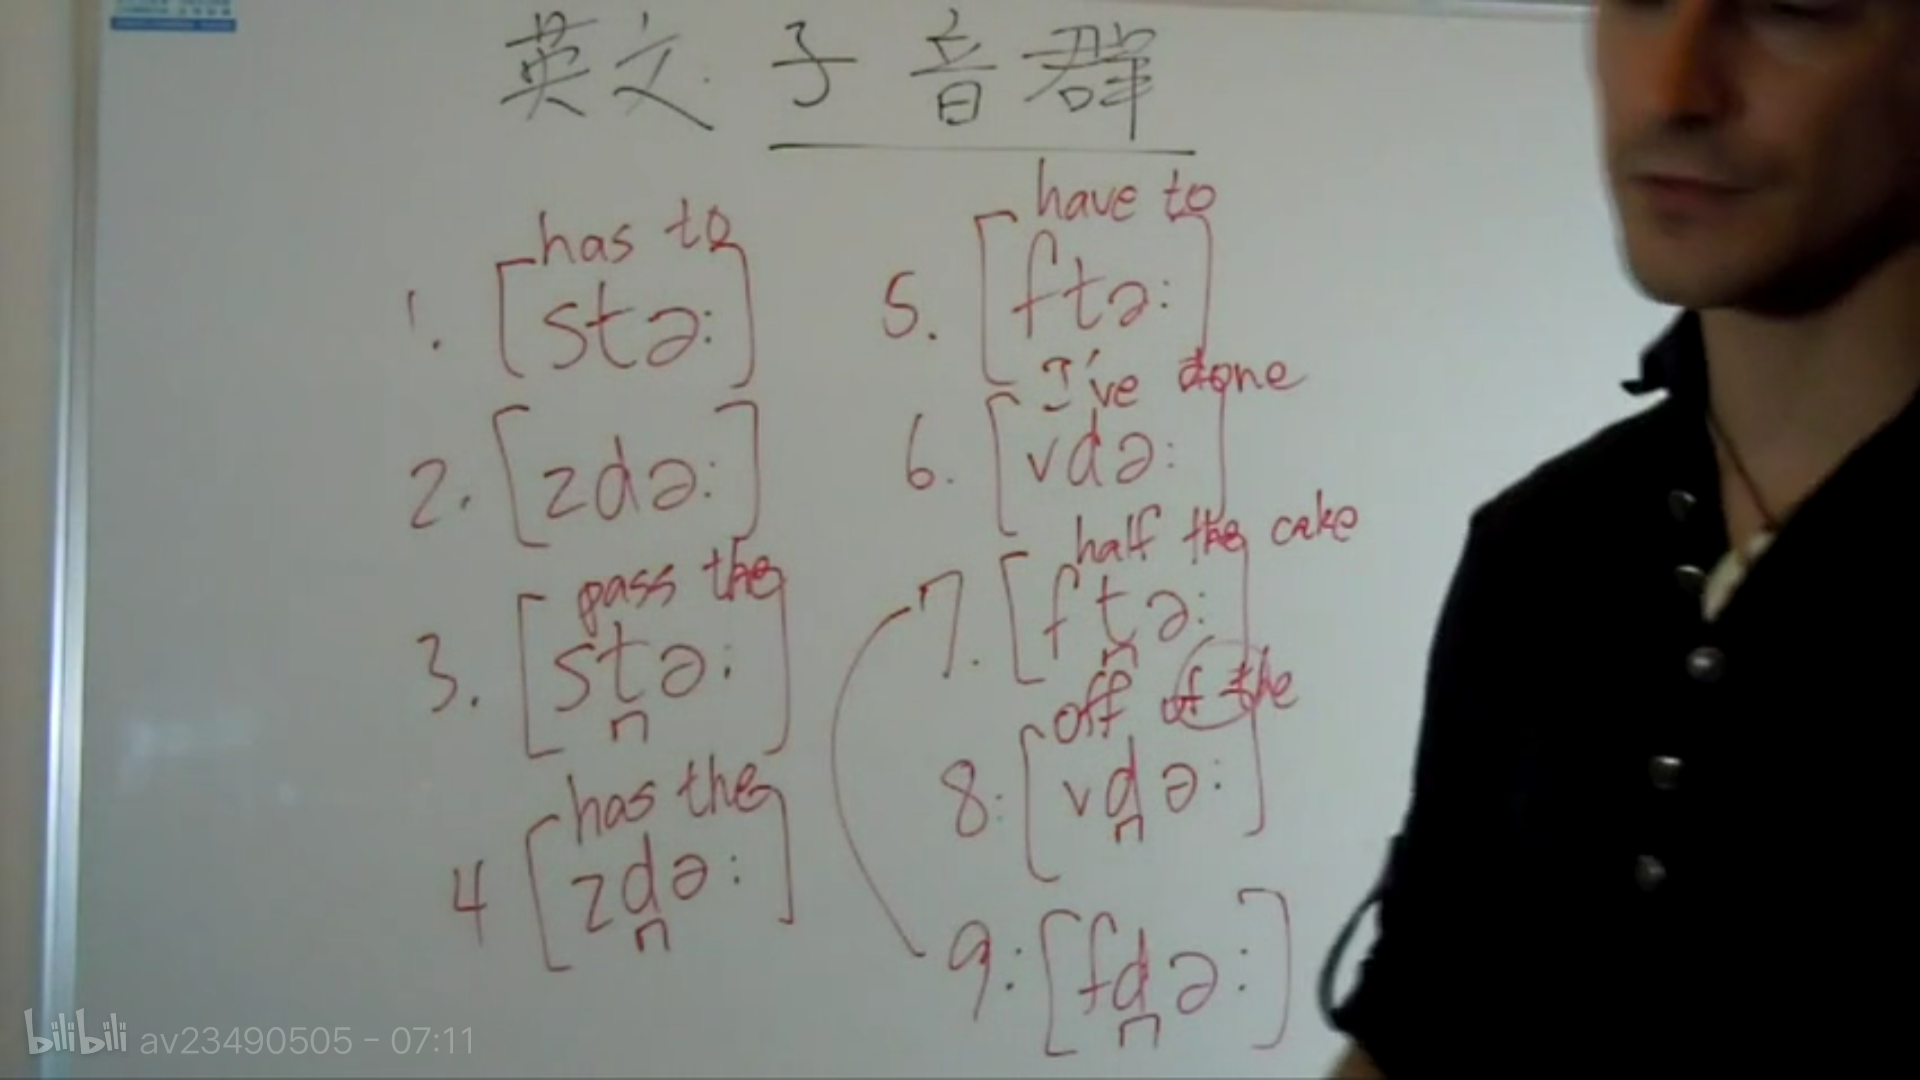 英文子音群
has to
1. [stə:]
2. [zdə:]
pass the
3. [st̺ə:]
has the
4 [zd̺ə:]
have to
5. [ftə:]
I've done
6. [vdə:]
half the cake
7. [ft̺ə:]
off of the
8: [vd̺ə:]
9: [fd̺ə:]
bilibili av23490505 - 07:11